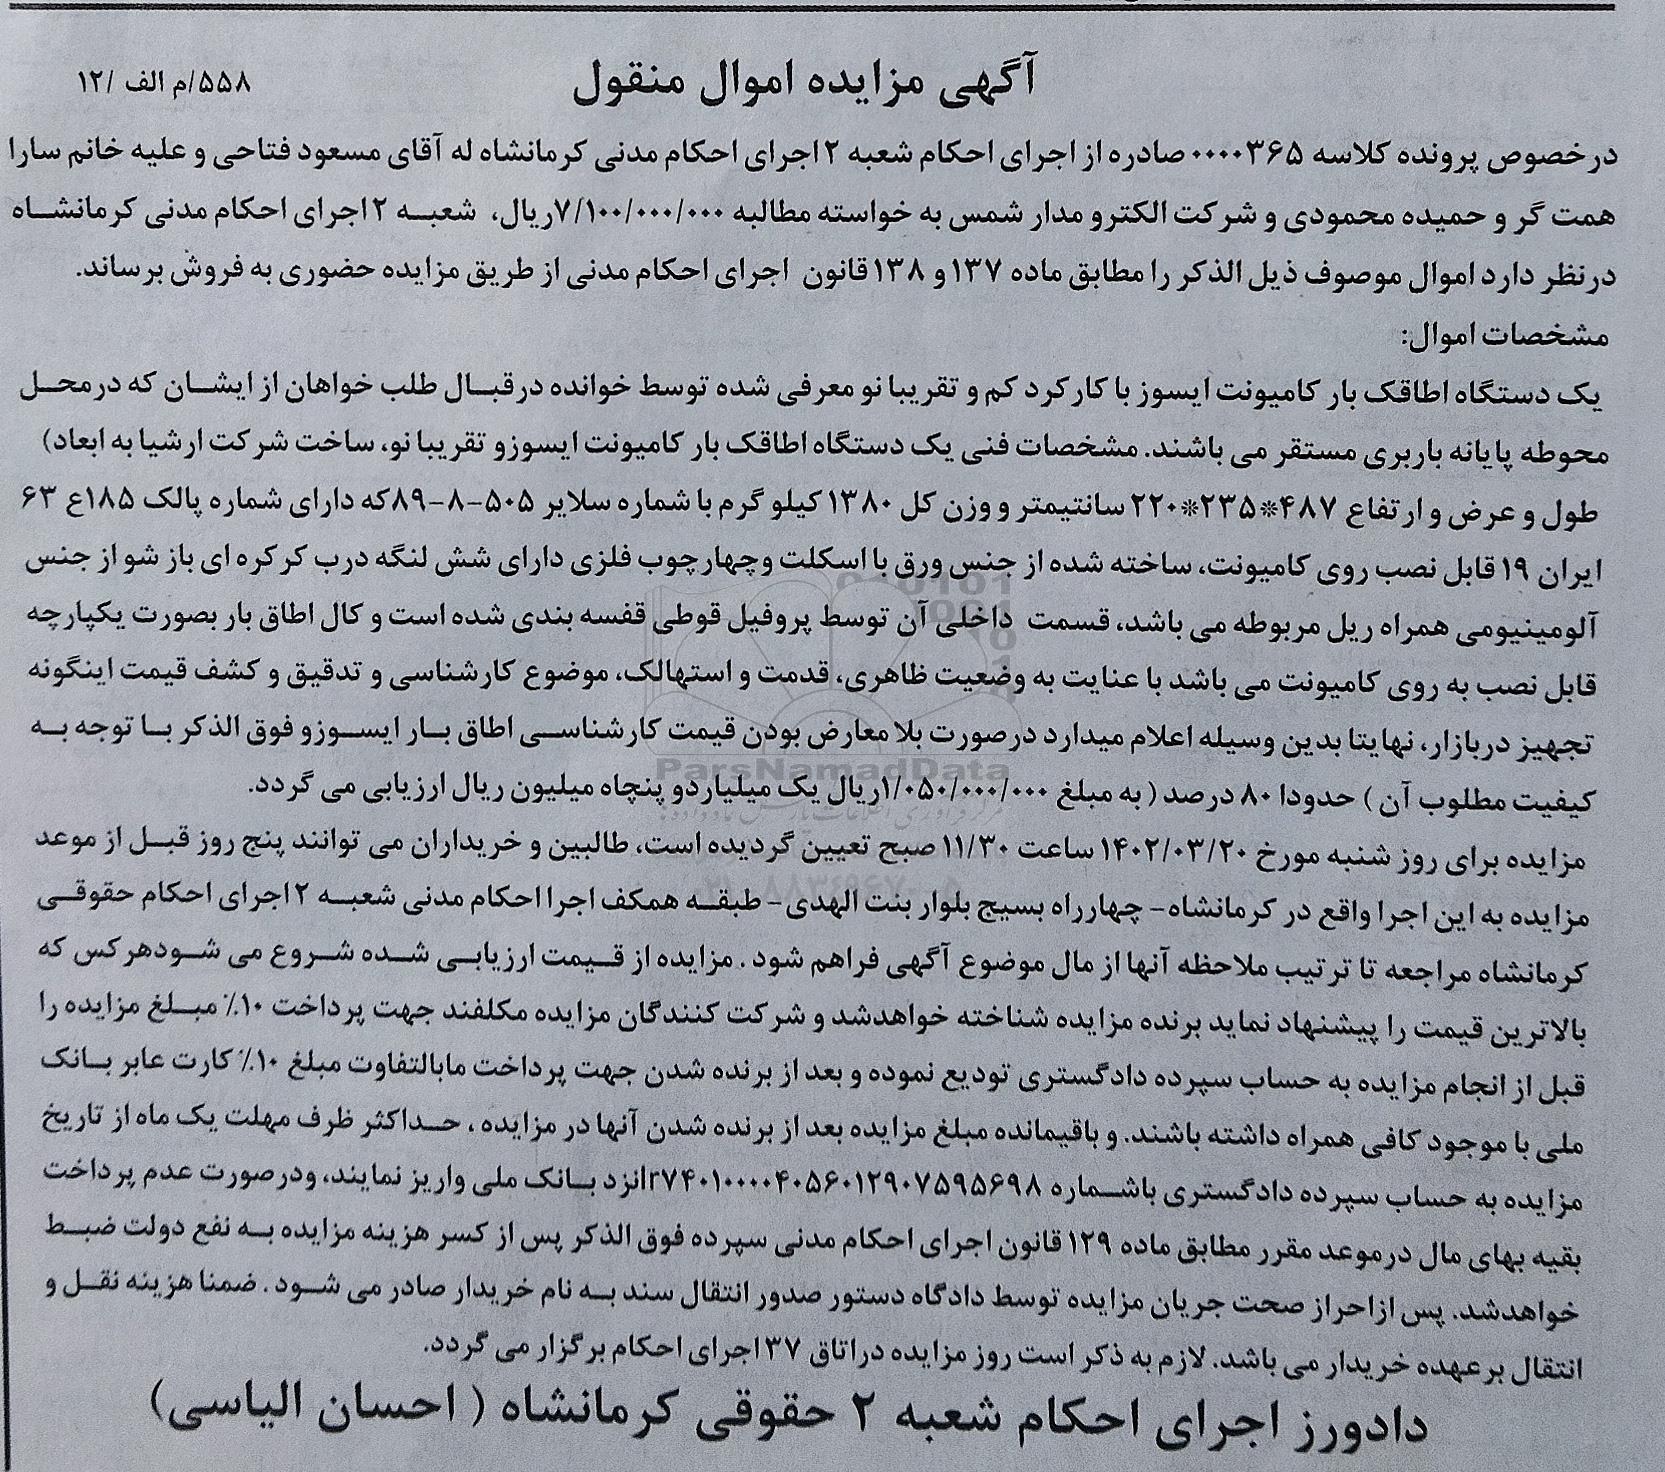 آگهی مزایده اموال منقول
۵۵۸/م الف /۱۲
درخصوص پرونده کلاسه ۰۰۰۰۳۶۵ صادره از اجرای احکام شعبه ۲ اجرای احکام مدنی کرمانشاه له آقای مسعود فتاحی و علیه خانم سارا
همت گر و حمیده محمودی و شرکت الکترو مدار شمس به خواسته مطالبه ۷/۱۰۰/۰۰۰/۰۰۰ریال، شعبه ۲ اجرای احکام مدنی کرمانشاه
درنظر دارد اموال موصوف ذیل الذکر را مطابق ماده ۱۳۷ و ۱۳۸ قانون اجرای احکام مدنی از طریق مزایده حضوری به فروش برساند.
مشخصات اموال:
یک دستگاه اطاقک بار کامیونت ایسوز با کارکرد کم و تقریبا نو معرفی شده توسط خوانده درقبال طلب خواهان از ایشان که درمحل
محوطه پایانه باربری مستقر می باشند. مشخصات فنی یک دستگاه اطاقک بار کامیونت ایسوزو تقریبا نو، ساخت شرکت ارشیا به ابعاد)
طول و عرض و ارتفاع ۴۸۷*۲۳۵*۲۲۰ سانتیمتر و وزن کل ۱۳۸۰ کیلو گرم با شماره سلایر ۵۰۵-۸-۸۹که دارای شماره پالک ۱۸۵ع ۶۳
ایران ۱۹ قابل نصب روی کامیونت، ساخته شده از جنس ورق با اسکلت وچهارچوب فلزی دارای شش لنگه درب کرکره ای باز شو از جنس
آلومینیومی همراه ریل مربوطه می باشد، قسمت داخلی آن توسط پروفیل قوطی قفسه بندی شده است و کال اطاق بار بصورت یکپارچه
قابل نصب به روی کامیونت می باشد با عنایت به وضعیت ظاهری، قدمت و استهالک، موضوع کارشناسی و تدقیق و کشف قیمت اینگونه
تجهیز دربازار، نهایتا بدین وسیله اعلام میدارد درصورت بلا معارض بودن قیمت کارشناسی اطاق بار ایسوزو فوق الذکر با توجه به
ParsNamadData
کیفیت مطلوب آن ) حدودا ۸۰ درصد ( به مبلغ ۱/۰۵۰/۰۰۰/۰۰۰ریال یک میلیاردو پنچاه میلیون ریال ارزیابی می گردد.
مزایده برای روز شنبه مورخ ۱۴۰۲/۰۳/۲۰ ساعت ۱۱/۳۰ صبح تعیین گردیده است، طالبین و خریداران می توانند پنج روز قبل از موعد
مزایده به این اجرا واقع در کرمانشاه- چهارراه بسیج بلوار بنت الهدی- طبقه همکف اجرا احکام مدنی شعبه ۲ اجرای احکام حقوقی
کرمانشاه مراجعه تا ترتیب ملاحظه آنها از مال موضوع آگهی فراهم شود . مزایده از قیمت ارزیابی شده شروع می شودهرکس که
بالاترین قیمت را پیشنهاد نماید برنده مزایده شناخته خواهدشد و شرکت کنندگان مزایده مکلفند جهت پرداخت ۱۰٪ مبلغ مزایده را
قبل از انجام مزایده به حساب سپرده دادگستری تودیع نموده و بعد از برنده شدن جهت پرداخت مابالتفاوت مبلغ ۱۰٪ کارت عابر بانک
ملی با موجود کافی همراه داشته باشند. و باقیمانده مبلغ مزایده بعد از برنده شدن آنها در مزایده ، حداکثر ظرف مهلت یک ماه از تاریخ
مزایده به حساب سپرده دادگستری باشماره Ir۷۴۰۱۰۰۰۰۴۰۵۶۰۱۲۹۰۷۵۹۵۶۹۸نزد بانک ملی واریز نمایند، ودرصورت عدم پرداخت
بقیه بهای مال درموعد مقرر مطابق ماده ۱۲۹ قانون اجرای احکام مدنی سپرده فوق الذکر پس از کسر هزینه مزایده به نفع دولت ضبط
خواهدشد. پس ازاحراز صحت جریان مزایده توسط دادگاه دستور صدور انتقال سند به نام خریدار صادر می شود . ضمنا هزینه نقل و
انتقال برعهده خریدار می باشد. لازم به ذکر است روز مزایده دراتاق ۳۷ اجرای احکام برگزار می گردد.
دادورز اجرای احکام شعبه ۲ حقوقی کرمانشاه ( احسان الیاسی)